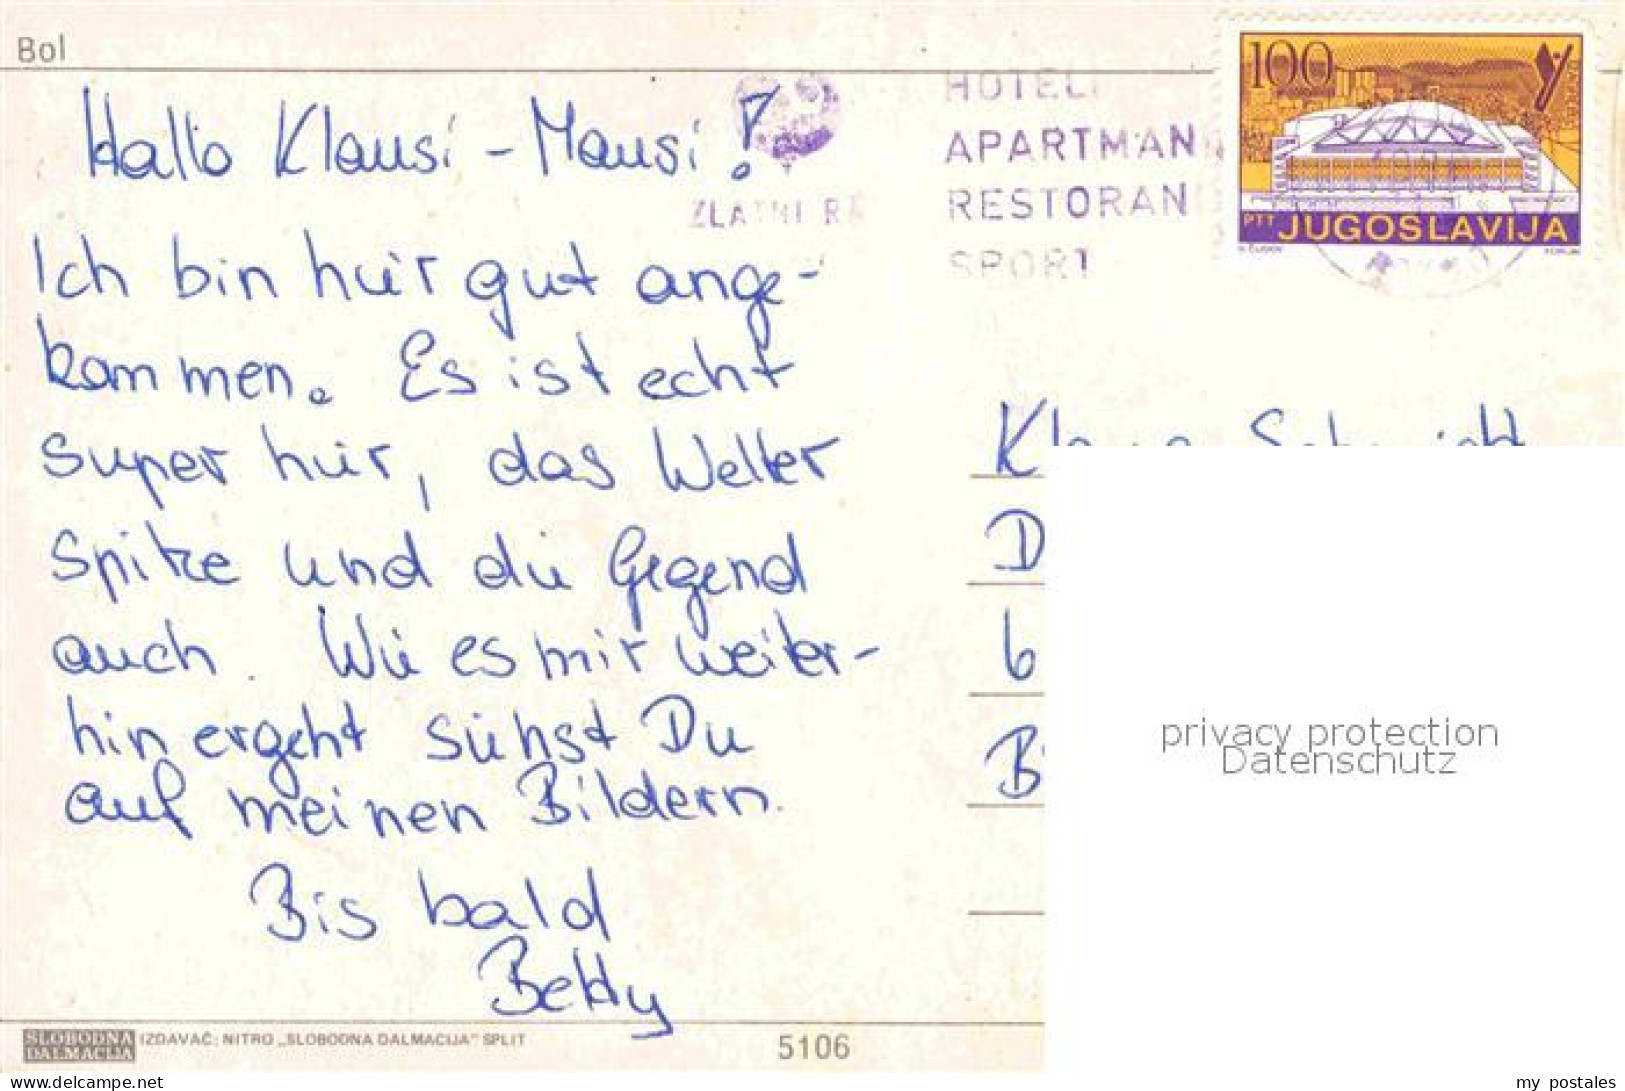 Bol
Hallo Klausi-Mausi!
Ich bin hier gut ange-
kommen. Es ist echt
super hier, das Wetter
Spitze und die Gegend
auch. Wie es mir weiter-
hin ergeht siehst Du
auf meinen Bildern.
Bis bald
Betty
ZLATNI RA
HOTELI
APARTMAN
RESTORAN
SPORT
100
PTT JUGOSLAVIJA
K
D
6
B
privacy protection
Datenschutz
SLOBODNA
DALMACIJA
IZDAVAČ: NITRO „SLOBODNA DALMACIJA" SPLIT
5106
www.delcampe.net
my_postales